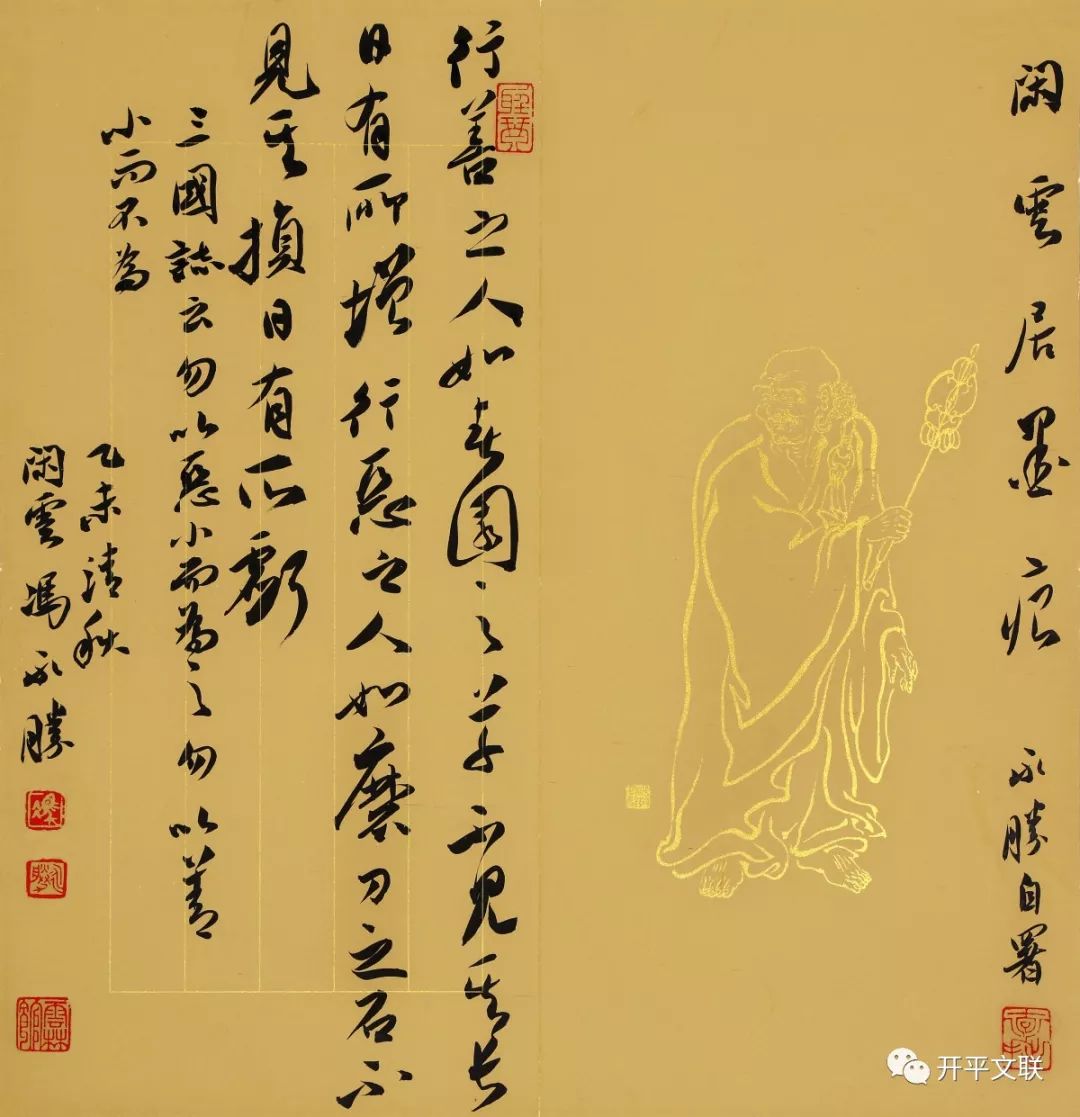 閑雲居墨痕
永勝自署
行善之人如春園之草不見其長
日有所增行惡之人如磨刀之石不
見其損日有所虧
三國誌云勿以惡小而為之勿以善
小而不為
乙未清秋
閑雲馮永勝
开平文联